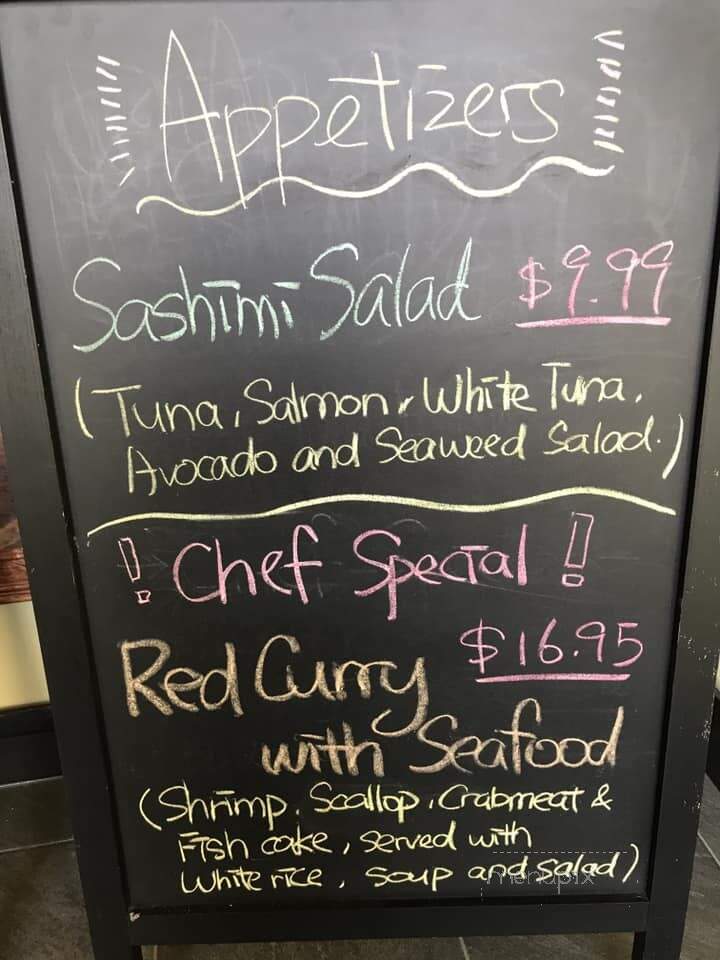 Appetizers
Sashimi Salad $9.99
(Tuna, Salmon, White Tuna,
Avocado and Seaweed Salad.)
! Chef Special !
$16.95
Red Curry
with Seafood
(Shrimp, Scallop, Crabmeat &
Fish cake, served with
White rice, soup and salad)
menupix